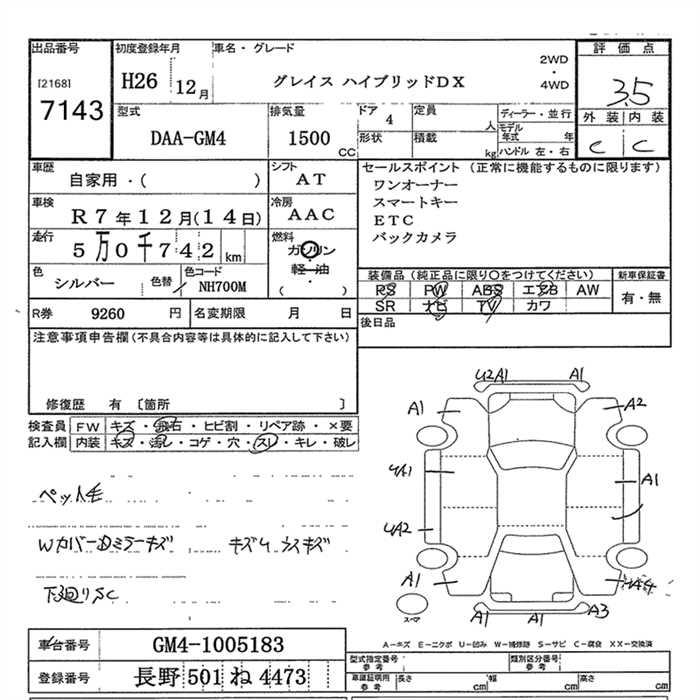 出品番号 初度登録年月 車名・グレード 評価点
[2168] 7143 H26 12月 グレイス ハイブリッドDX 2WD・4WD 3.5
外装 内装
C C
型式 排気量 ドア 定員 ディーラー・並行
DAA-GM4 1500 CC 4 人 モデル年式 年
形状 積載 kg ハンドル 左・右
車歴 シフト セールスポイント (正常に機能するものに限ります)
自家用・( ) AT ワンオーナー
スマートキー
車検 冷房 ETC
R7年12月(14日) AAC バックカメラ
走行 燃料
5万0千742km ガソリン
軽・油
・
( )
色 色替 色コード 装備品(純正品に限り○をつけてください) 新車保証書
シルバー NH700M RS PW ABS エアB AW 有・無
SR ナビ TV カワ
R券 9260円 名変期限 月 日 後日品
注意事項申告欄(不具合内容等は具体的に記入して下さい)
修復歴 有 〔箇所 〕
検査員 FW キズ・飛石・ヒビ割・リペア跡・×要
記入欄 内装 キズ・汚レ・コゲ・穴・スレ・キレ・破レ
ペット毛
Wカバー
ミラーキズ
下廻りSC
U2A1 A1
A1 A2
A1
UA2
A1
A1 A1 A3
スーマ
A-キズ E-エクボ U-凹み W-補修跡 S-サビ C-腐食 XX-交換済
車台番号 GM4-1005183
登録番号 長野 501 ね 4473
型式指定番号 参考 類別区分番号 参考
車庫証明用 参考 長さ cm 幅 cm 高さ cm